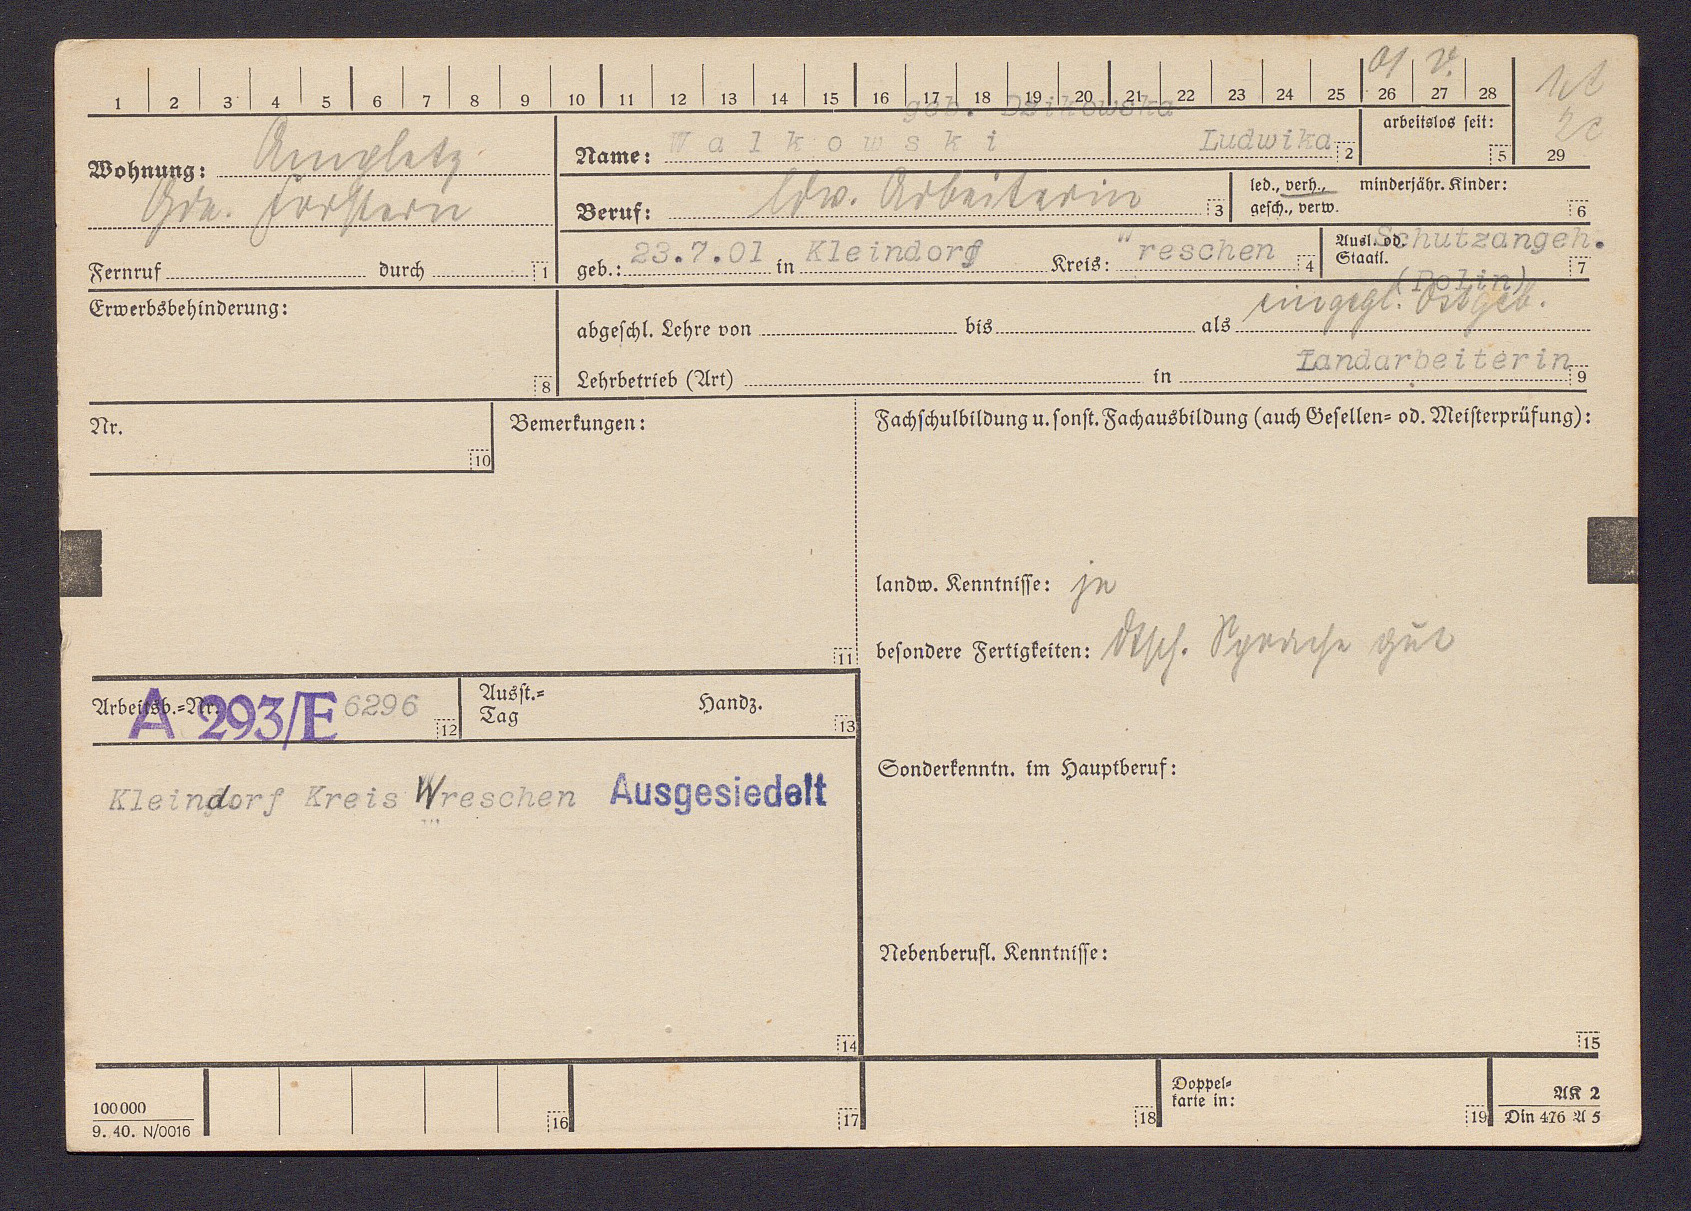 01 V.
1 2 3 4 5 6 7 8 9 10 11 12 13 14 15 16 17 18 19 20 21 22 23 24 25 26 27 28
geb. Dzikowska
Wohnung:
Gde. Forstern
Fernruf durch 1
Name: Walkowski Ludwika 2
arbeitslos seit: 5
29
Beruf: ldw. Arbeiterin 3
led., verh., gesch., verw. minderjähr. Kinder: 6
geb.: 23.7.01 in Kleindorf Kreis: Wreschen 4
Ausl. od. Staatl. Schutzangeh. 7
(Polin)
eingegl. Ostgeb.
Erwerbsbehinderung: 8
abgeschl. Lehre von bis als
Landarbeiterin
Lehrbetrieb (Art) in 9
Nr. 10
Bemerkungen: 11
Fachschulbildung u. sonst. Fachausbildung (auch Gesellen- od. Meisterprüfung):
landw. Kenntnisse: ja
besondere Fertigkeiten: dtsch. Sprache gut
Arbeitsb.-Nr. A 293/E 6296 12
Ausst.-Tag Handz. 13
Kleindorf Kreis Wreschen Ausgesiedelt
Sonderkenntn. im Hauptberuf:
Nebenberufl. Kenntnisse:
14
15
100000
9. 40. N/0016
16
17
18
Doppel-
karte in: 19
AK 2
Din 476 A 5